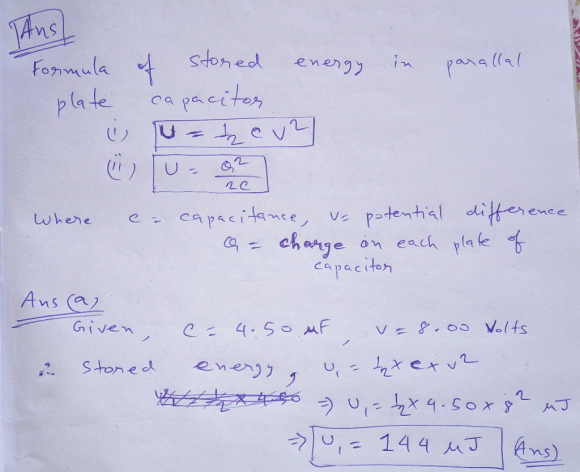 Ans
Formula of stored energy in parallal
plate capacitor
(i) U = 1/2 c v²
(ii) U = Q²/2C
where c = capacitance, V= potential difference
Q = charge on each plate of
capacitor
Ans (a)
Given, C = 4.50 μF, V = 8.00 Volts
∴ Stored energy, U₁ = 1/2 × c × v²
⇒ U₁ = 1/2 × 4.50 × 8² μJ
⇒ U₁ = 144 μJ (Ans)